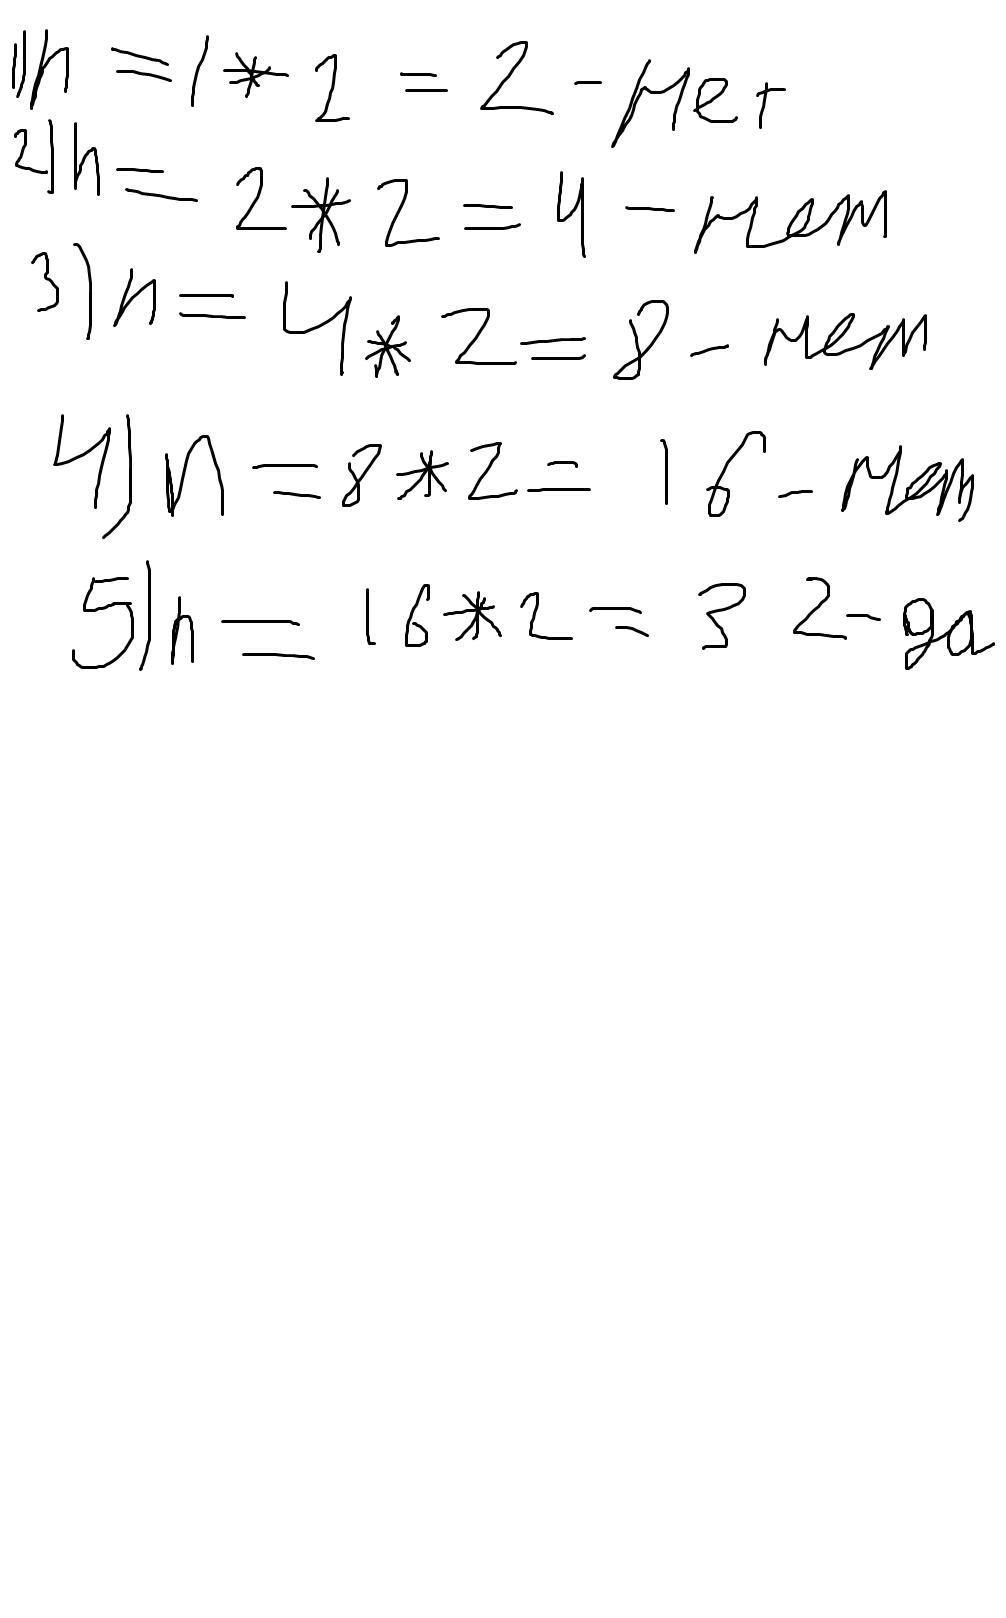 1)n = 1 * 2 = 2 - нет
2)n = 2 * 2 = 4 - нет
3)n = 4 * 2 = 8 - нет
4)n = 8 * 2 = 16 - нет
5)n = 16 * 2 = 32 - да